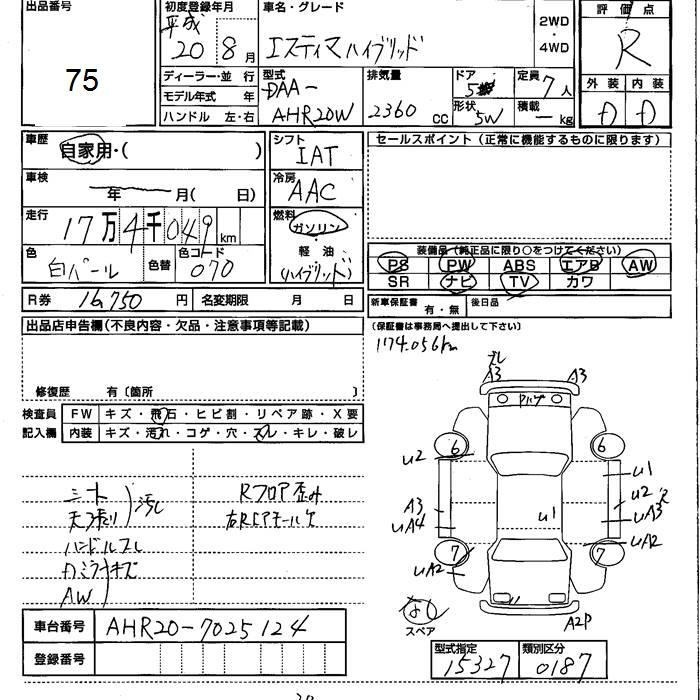 出品番号
75
初度登録年月
平成
20 8 月
ディーラー・並 行
モデル年式 年
ハンドル 左・右
車名・グレード
エスティマハイブリッド
2WD
・
4WD
型式
DAA-
AHR20W
排気量
2360 cc
ドア
5
形状
5W
定員
7 人
積載
— kg
評 価 点
R
外 装 内 装
車歴
自家用・( )
車検
年 月( 日)
走行
17万4千049 km
色
白パール
色替
色コード
070
シフト
IAT
冷房
AAC
燃料
ガソリン
軽 油
(ハイブリッド)
R券 16,750 円 名変期限 月 日
セールスポイント (正常に機能するものに限ります)
装備品 (純正品に限り○をつけてください)
PS PW ABS エアB AW
SR ナビ TV カワ
新車保証書 有・無 後日品
(保証書は事務局へ提出して下さい)
174.056km
出品店申告欄 (不良内容・欠品・注意事項等記載)
修復歴 有〔箇所 〕
検査員 FW キズ・飛石・ヒビ割・リペア跡・X要
記入欄 内装 キズ・汚れ・コゲ・穴・スレ・キレ・破レ
シート
天張り
汚れ
ハンドルスレ
Dミラーキズ
AW
Rフロア歪み
A3 A3
6 6
U2
U1
U2
A3
UA4
UA3
U1
UA2
7 7
UA2
A2P
なし
スペア
車台番号 AHR20-7025124
登録番号
型式指定 類別区分
15327 0187